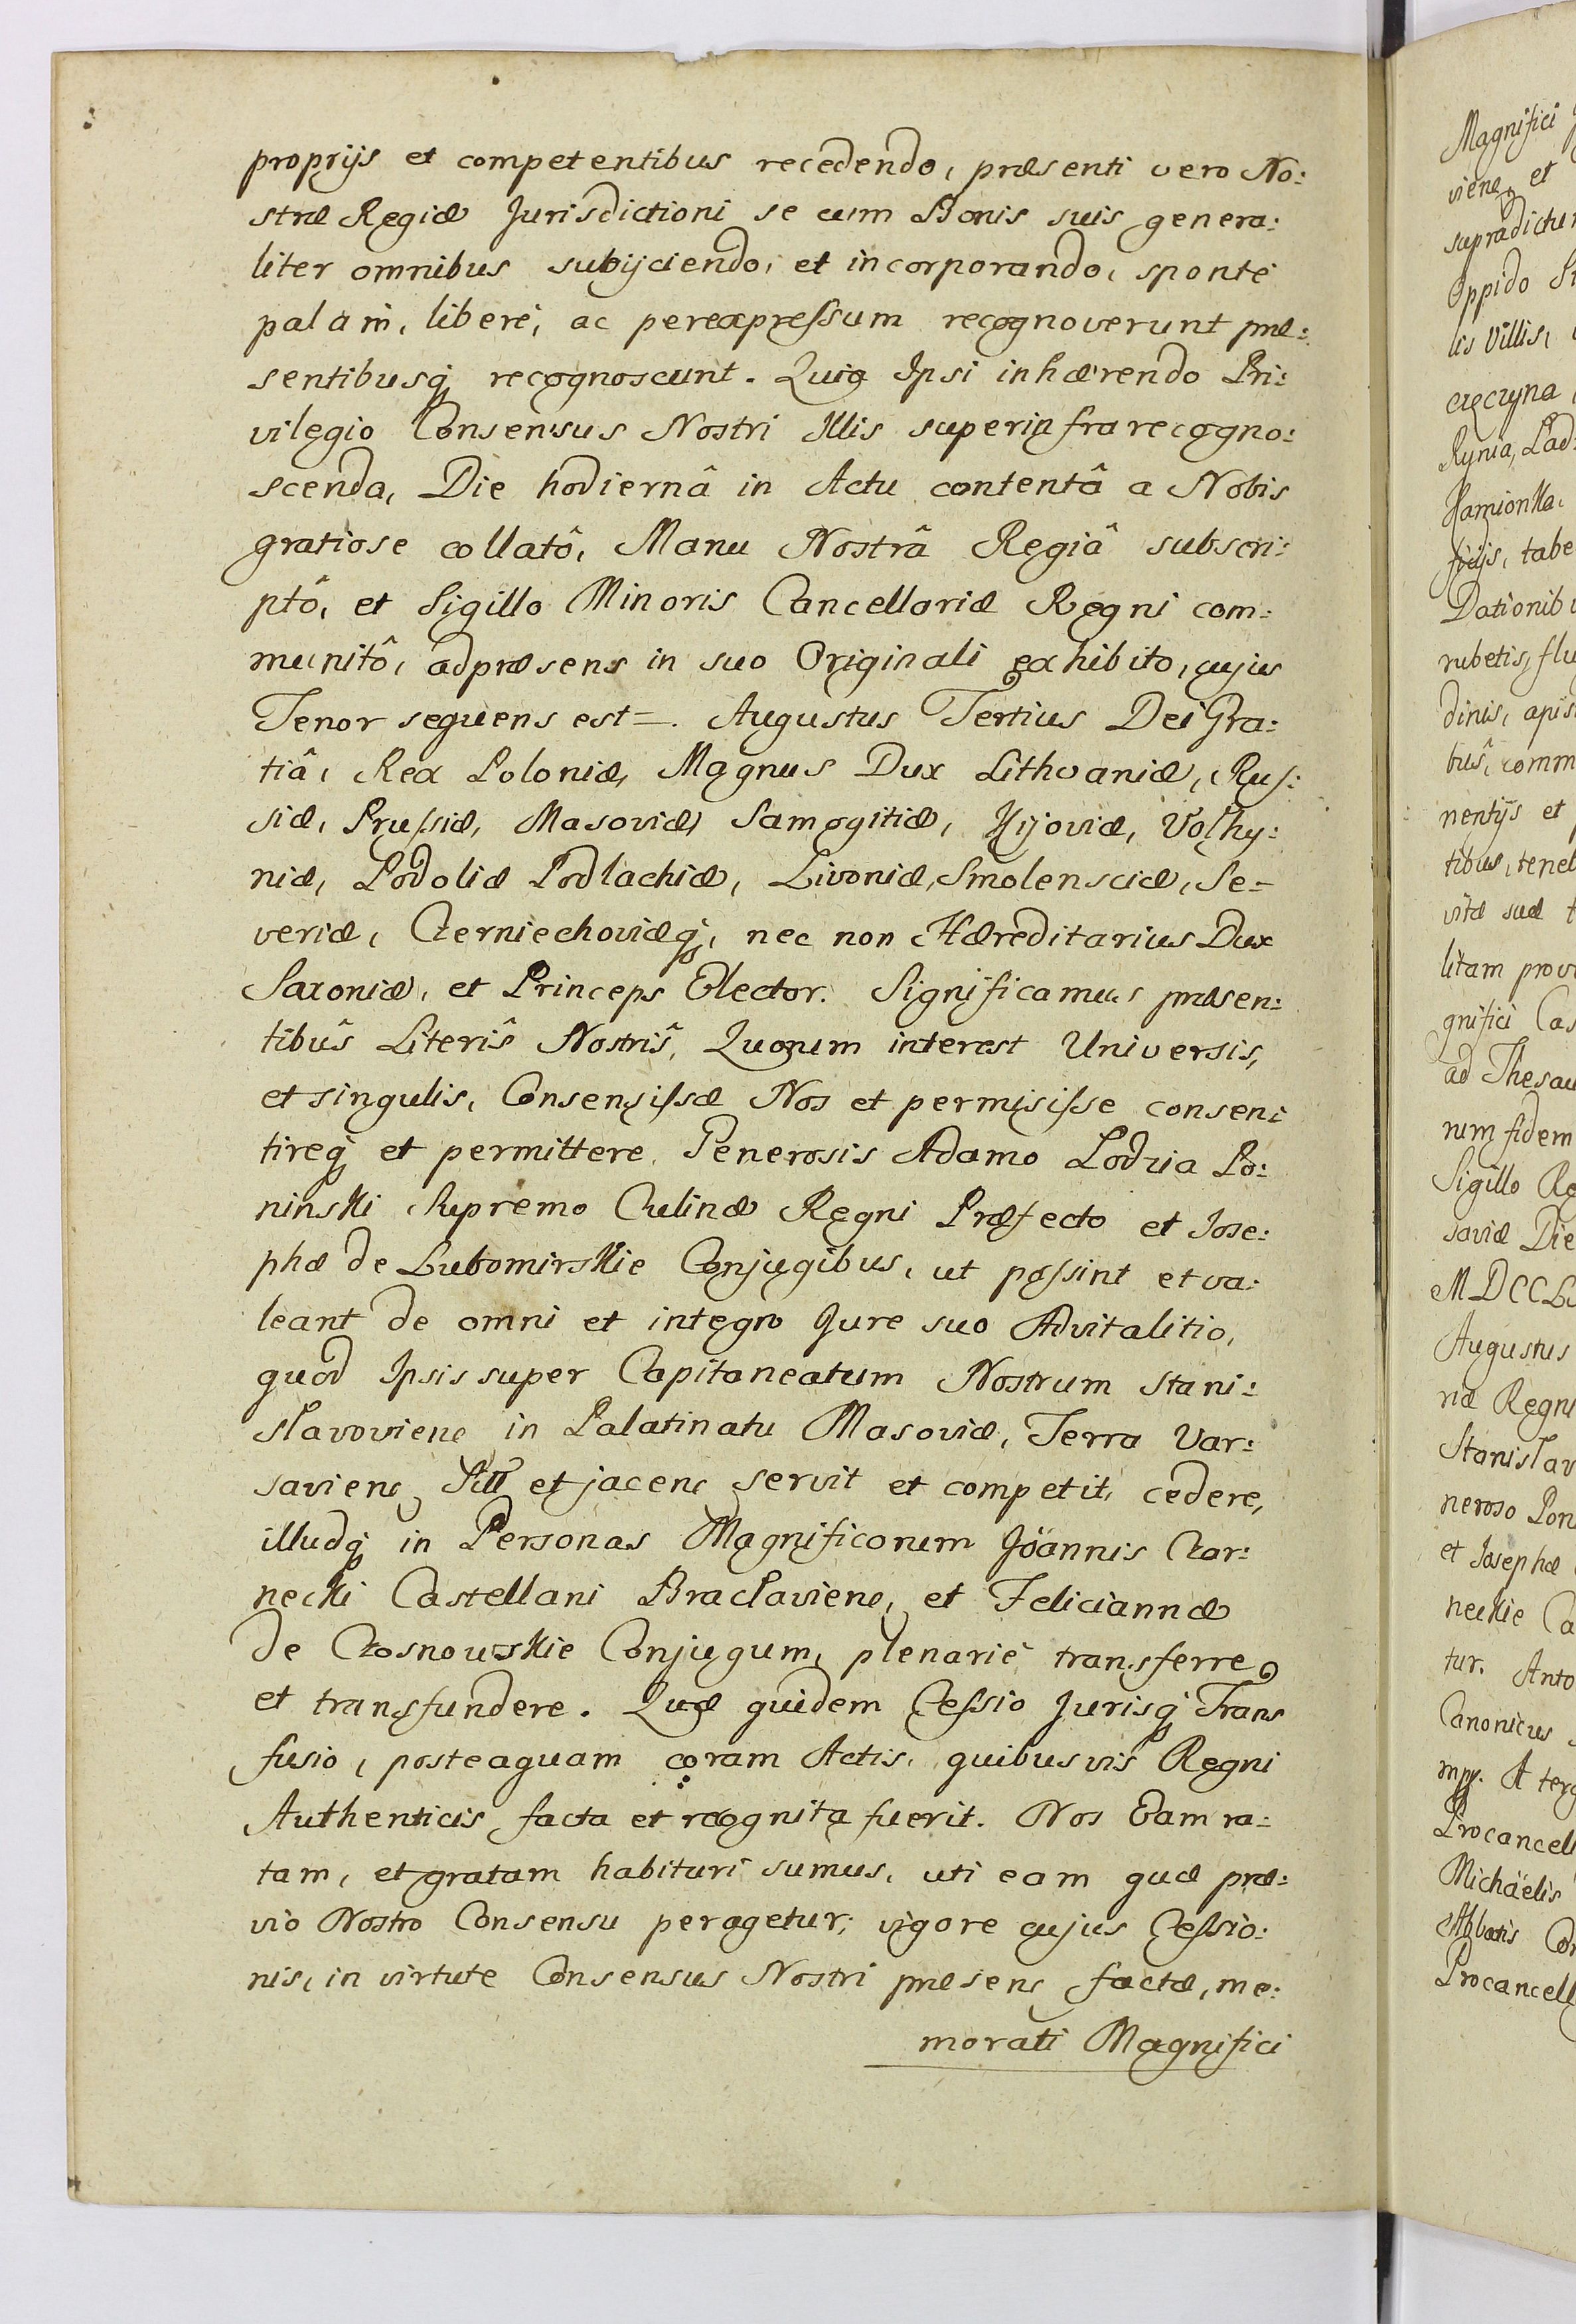 proprijs et competentibus recedendo, præsenti vero No:
stræ Regiæ Jurisdictioni se cum Bonis suis genera:
liter omnibus subijciendo, et incorporando, sponte
palam, libere, ac perexpreſsum recognoverunt præ:
sentibusq; recognoscunt. Quia Ipsi inhærendo Pri:
vilegio Consensus Nostri Illis superinfrarecogno:
scenda, Die hodiernâ in Actu contentâ a Nobis
gratiose collatô, Manu Nostrâ Regiâ subscri:
ptô, et Sigillo Minoris Cancellariæ Regni com:
munitô, adpræsens in suo Originali exhibito, cujus
Tenor sequens est =. Augustus Tertius Dei Gra:
tiâ, Rex Poloniæ, Magnus Dux Lithvaniæ, Rus:
siæ, Pruſsiæ, Masoviæ, Samogitiæ, Kijoviæ, Volhy:
niæ, Podoliæ Podlachiæ, Livoniæ, Smolensciæ, Se-
veriæ, Czerniechoviæq;, nec non Hæreditarius Dux
Saxoniæ, et Princeps Elector. Significamus præsen:
tibûs Literîs Nostrîs, Quorum interest Universis,
et singulis, Consensiſsæ Nos et permisiſse consen:
tireq; et permittere, Generosis Adamo Lodzia Po:
ninski Supremo Culinæ Regni Præfecto et Jose:
phæ de Lubomirskie Conjugibus, ut poſsint et va:
leant de omni et integro Jure suo Advitalitio,
quod Ipsis super Capitaneatum Nostrum Stani:
slavoviene in Palatinatu Masoviæ, Terra Var:
saviens, Sitt et jacens servit et competit, cedere,
illudq; in Personas Magnificorum Joannis Czar:
necki Castellani Braclaviens, et Feliciannæ
de Czosnowskie Conjugum, plenarie transferre
et transfundere. Quæ quidem Ceſsio Jurisq; Trans
fusio, posteaquam coram Actis, quibusvis Regni
Authenticis facta et recognita fuerit. Nos Eam ra:
tam, et gratam habituri sumus, uti eam quæ præ:
vio Nostro Consensu peragetur; vigore cujus Ceſsio:
nis, in virtute Consensus Nostri præsens factæ, me:
morati Magnifici
Magnifici
viens, et
supradictu
Oppido
lis Villis,
czyna
Rynia,
Kamionka,
tabe
Dationib
rubetis, flu
dinis, apis
bûs, comm
nentijs et
tibus, tene
vitæ suæ
litam prov
gnifici Cas
ad Thesau
rum fidem
Sigillo Re
saviæ Die
MDCCL
Augustus
riæ Regni
Stanislav
neroso Pon
et Josephæ
neckie Ca
tur. Anto
Canonicus
mpp. A terg
Procancell
Michaelis
Abbatis Co
Procancell